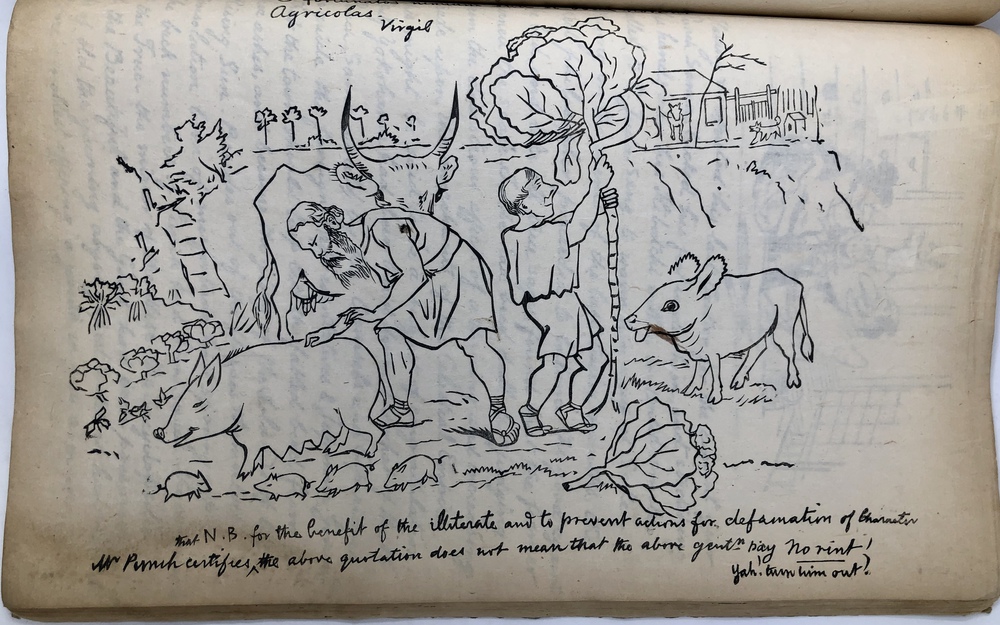 Agricolas.
Virgil
that N.B. for the benefit of the illiterate and to prevent actions for defamation of Character
Mr Punch certifies, the above quotation does not mean that the above gentn pay No rint!
Yah! turn him out!